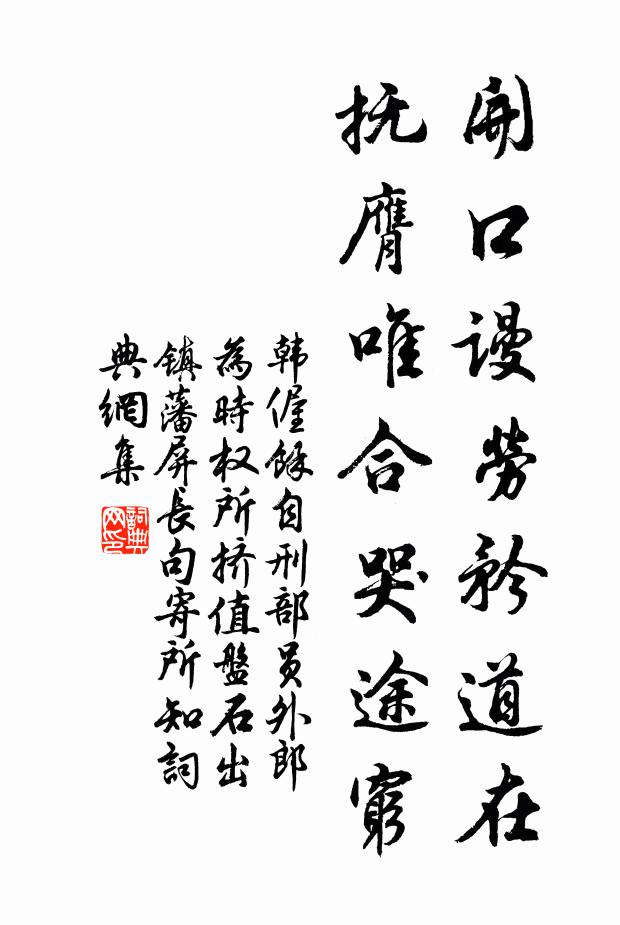 開口謾勞矜道在
抚膺唯合哭途窮
韩偓餘自刑部员外郎
為時权所挤值盤石出
镇藩屏長句寄所知詞
典網集
詞典
网印